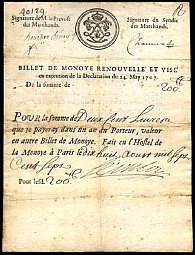 20129.
Signature de M. le Prevost des Marchands.
Signature du Syndic des Marchands.
BILLET DE MONOYE RENOUVELLE' ET VISE'
en execution de la Declaration du 24. May 1707.
De la somme de 200.tt
POUR la somme de Deux Cent Livres
que je payeray dans un an au Porteur, valeur
en autre Billet de Monoye. Fait en l'Hostel de
la Monoye à Paris le dix huit aoust mil sept
Cent Sept.
Pour lesd. 200.tt